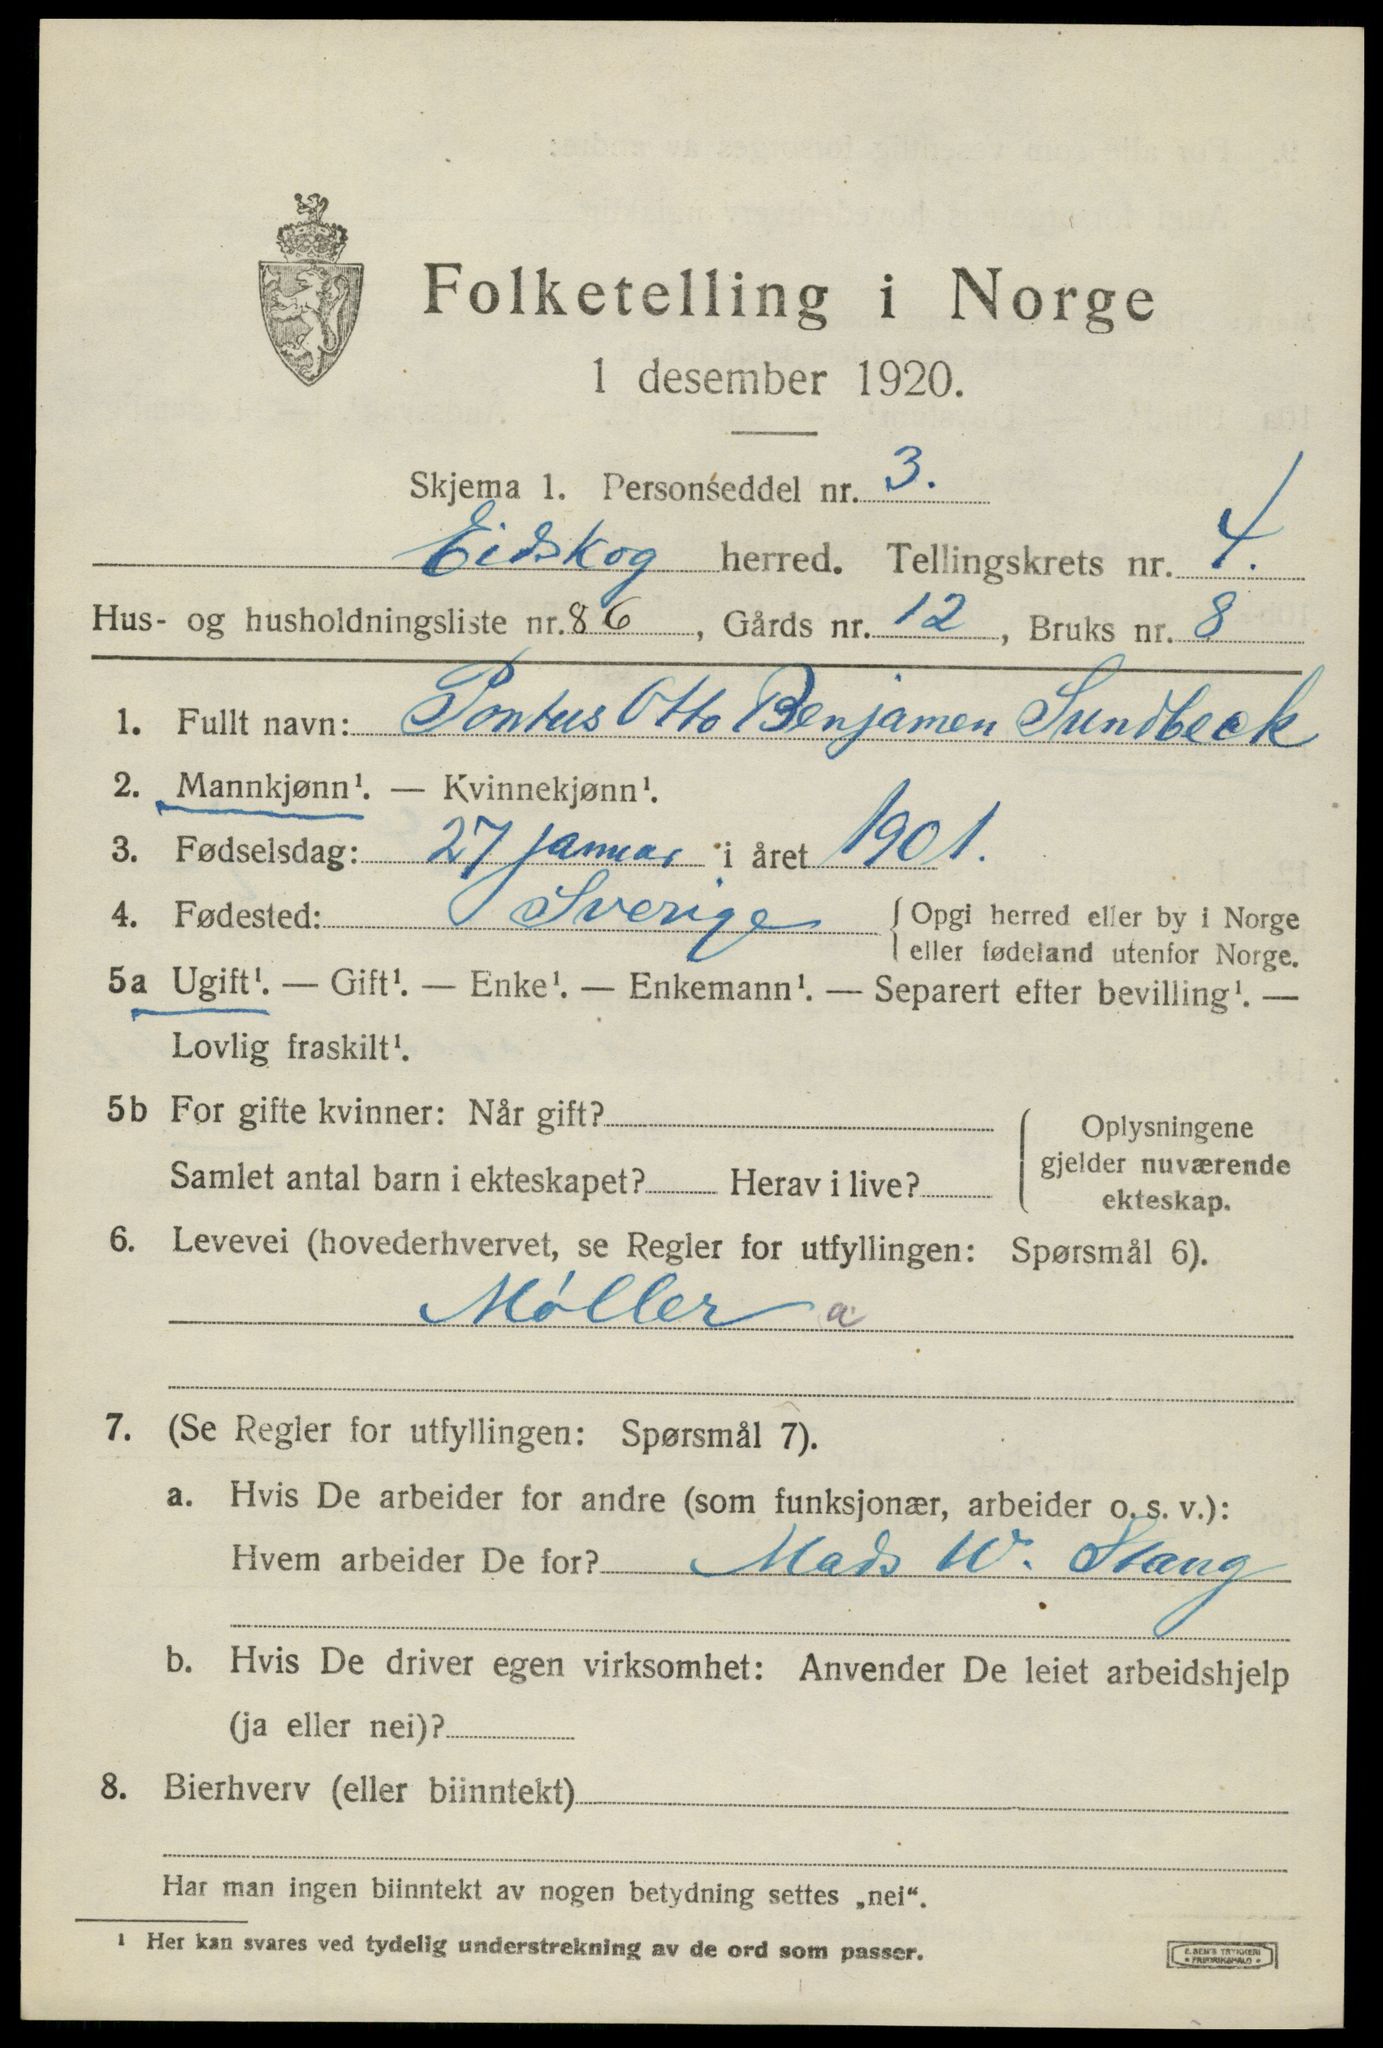 Folketelling i Norge
1 desember 1920.
Skjema 1. Personseddel nr. 3.
Eidskog herred. Tellingskrets nr. 4.
Hus- og husholdningsliste nr. 86, Gårds nr. 12, Bruks nr. 8
1. Fullt navn: Pontus Otto Benjamen Sundbeck
2. Mannkjønn¹. — Kvinnekjønn¹.
3. Fødselsdag: 27 januar i året 1901.
4. Fødested: Sverige { Opgi herred eller by i Norge
eller fødeland utenfor Norge.
5a Ugift¹. — Gift¹. — Enke¹. — Enkemann¹. — Separert efter bevilling¹. —
Lovlig fraskilt¹.
5b For gifte kvinner: Når gift?
Samlet antal barn i ekteskapet? Herav i live?
{ Oplysningene
gjelder nuværende
ekteskap.
6. Levevei (hovederhvervet, se Regler for utfyllingen: Spørsmål 6).
Møller a
7. (Se Regler for utfyllingen: Spørsmål 7).
a. Hvis De arbeider for andre (som funksjonær, arbeider o. s. v.):
Hvem arbeider De for? Mads W. Stang
b. Hvis De driver egen virksomhet: Anvender De leiet arbeidshjelp
(ja eller nei)?
8. Bierhverv (eller biinntekt)
Har man ingen biinntekt av nogen betydning settes „nei“.
¹ Her kan svares ved tydelig understrekning av de ord som passer.
E. SEM'S TRYKKERI
* FREDRIKSHALD *